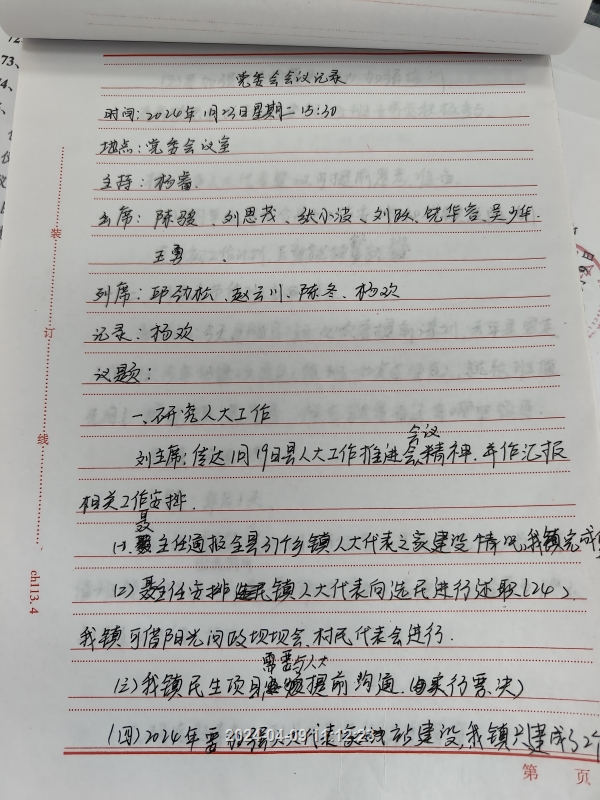 党委会会议记录
时间：2024年1月23日星期二 15:30
地点：党委会议室
主持：杨睿
出席：陈骏、刘思茂、张小波、刘跃、饶华容、吴少华、
王勇
列席：邱劲松、赵云川、陈冬、杨欢
记录：杨欢
议题：
一、研究人大工作
刘主席：传达1月19日县人大工作推进会会议精神，并作汇报
相关工作安排
(1) 聂主任通报全县31个乡镇人大代表之家建设情况，我镇完成
(2) 聂主任安排镇人大代表向选民进行述职(24)，
我镇可借阳光问政坝坝会、村民代表会进行.
(三)我镇民生项目需要与人大提前沟通.(票决)
(四)2024年要加强人大代表站建设，我镇只建成了2个
装
订
线
ch113.4
第 页
2024-04-09
72
73、